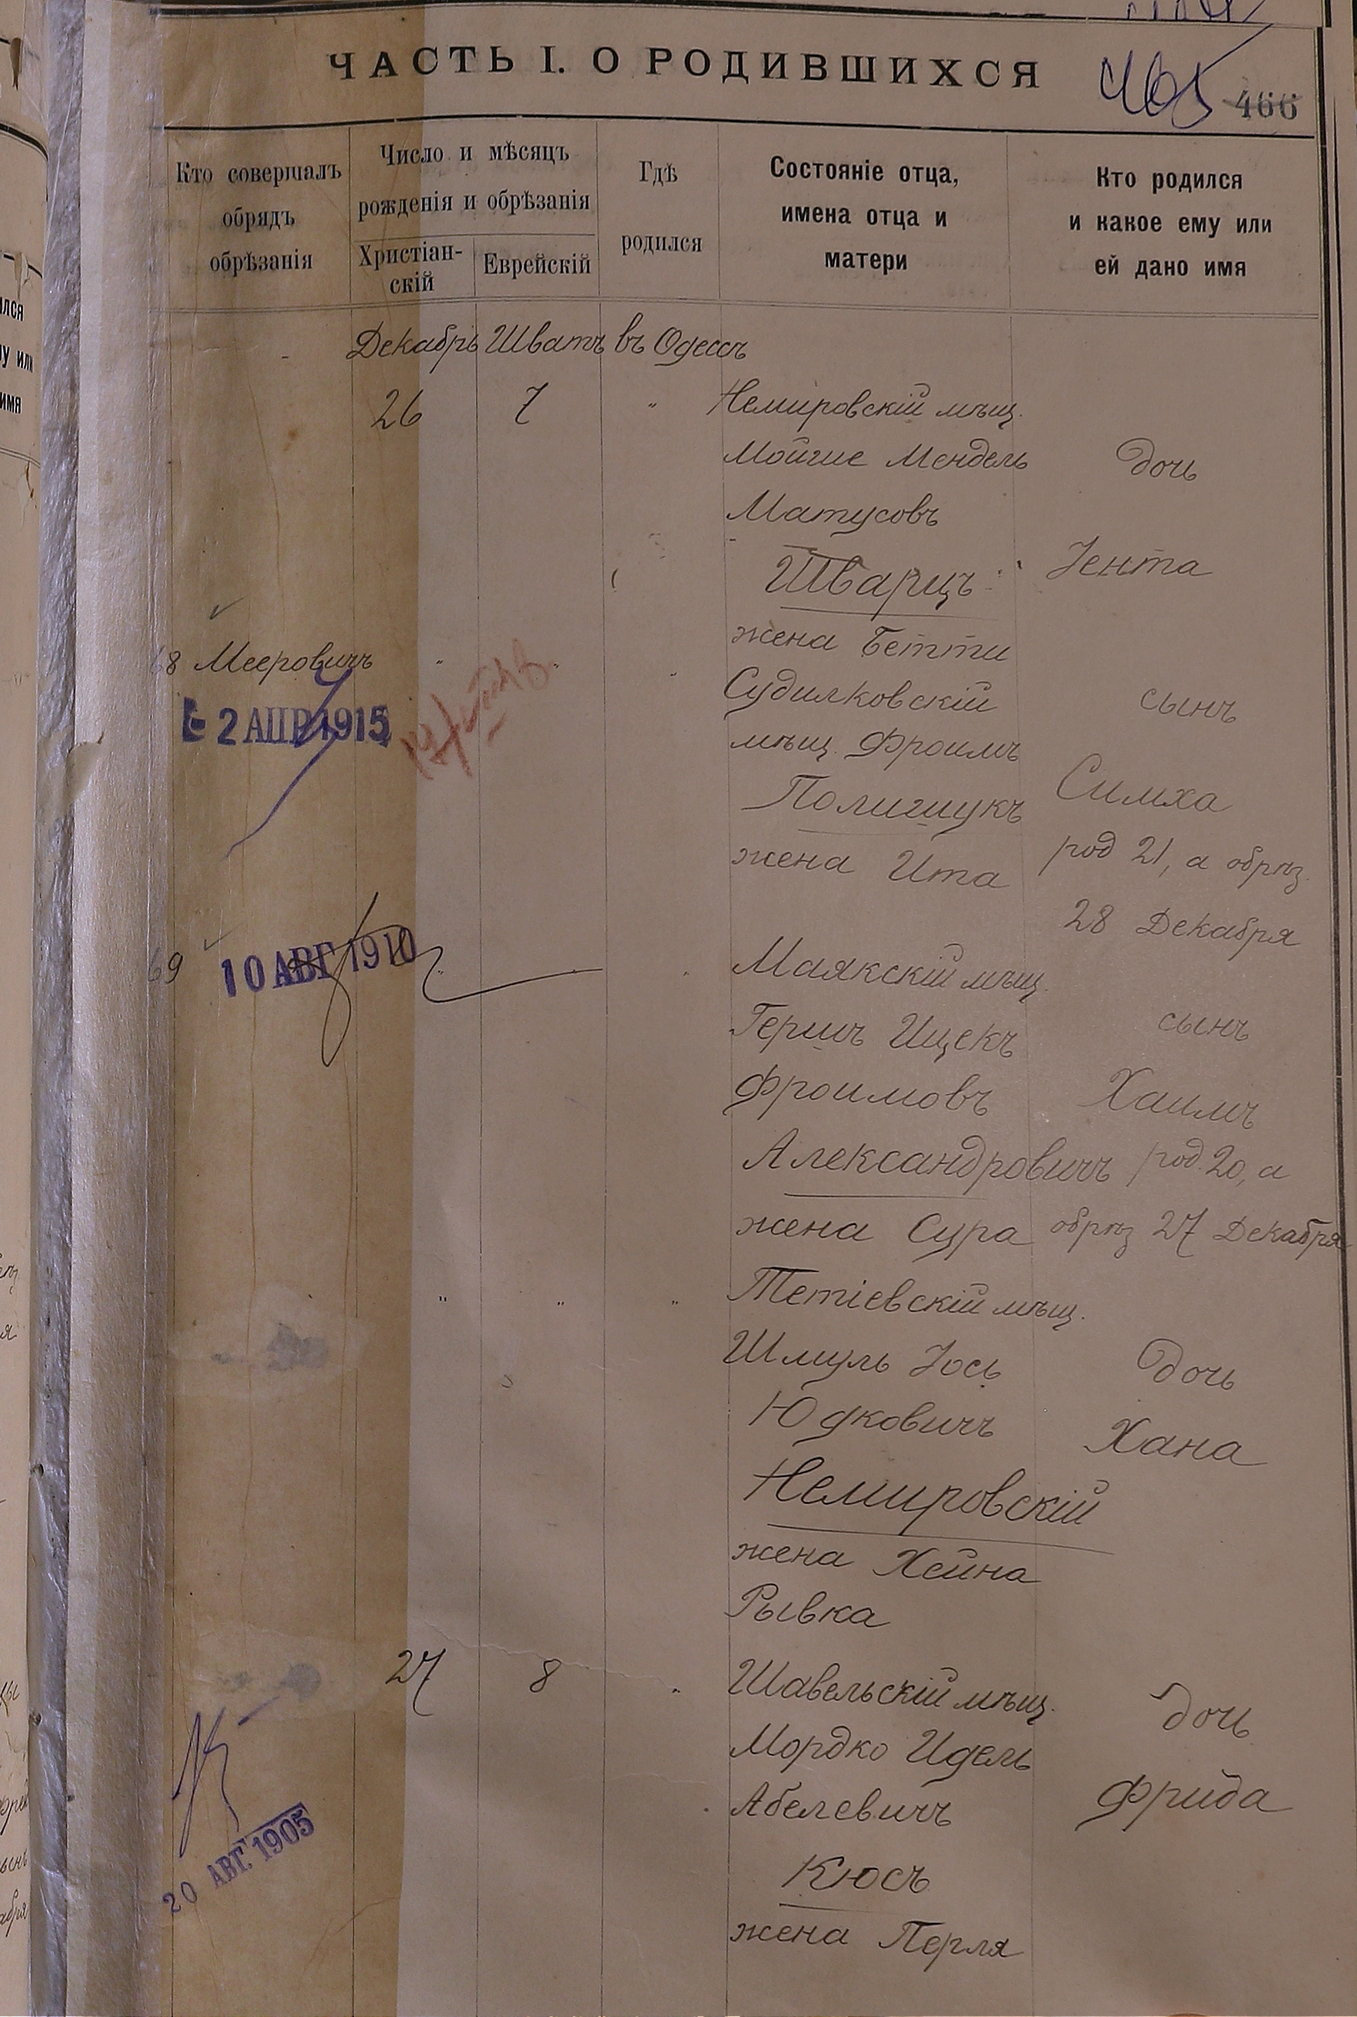 ЧАСТЬ I. О РОДИВШИХСЯ
465 466
Кто совершалъ
обрядъ
обрѣзанія
Число и мѣсяцъ
рожденія и обрѣзанія
Христіан-
скій
Еврейскій
Гдѣ
родился
Состояніе отца,
имена отца и
матери
Кто родился
и какое ему или
ей дано имя
Декабрь Шватъ въ Одессѣ
26 7 " Немировскій мѣщ.
Мойше Мендель дочь
Матусовъ
Шварцъ Іента
жена Бетти
68 Мееровичъ " " " Судилковскій сынъ
2 АПР 1915
мѣщ. Фроимъ
Полищукъ Симха
жена Ита род 21, а обрѣз.
28 Декабря
69 10 АВГ 1910 Маякскій мѣщ.
Гершъ Ицекъ сынъ
Фроимовъ Хаимъ
Александровичъ род. 20, а
жена Сура обрѣз 27 Декабря
" " " Тетіевскій мѣщ.
Шмуль Іось дочь
Юдковичъ Хана
Немировскій
жена Хейна
Рывка
27 8 " Шавельскій мѣщ. дочь
Мордко Идель
Абелевичъ Фрида
20 АВГ. 1905
Кюсъ
жена Перля